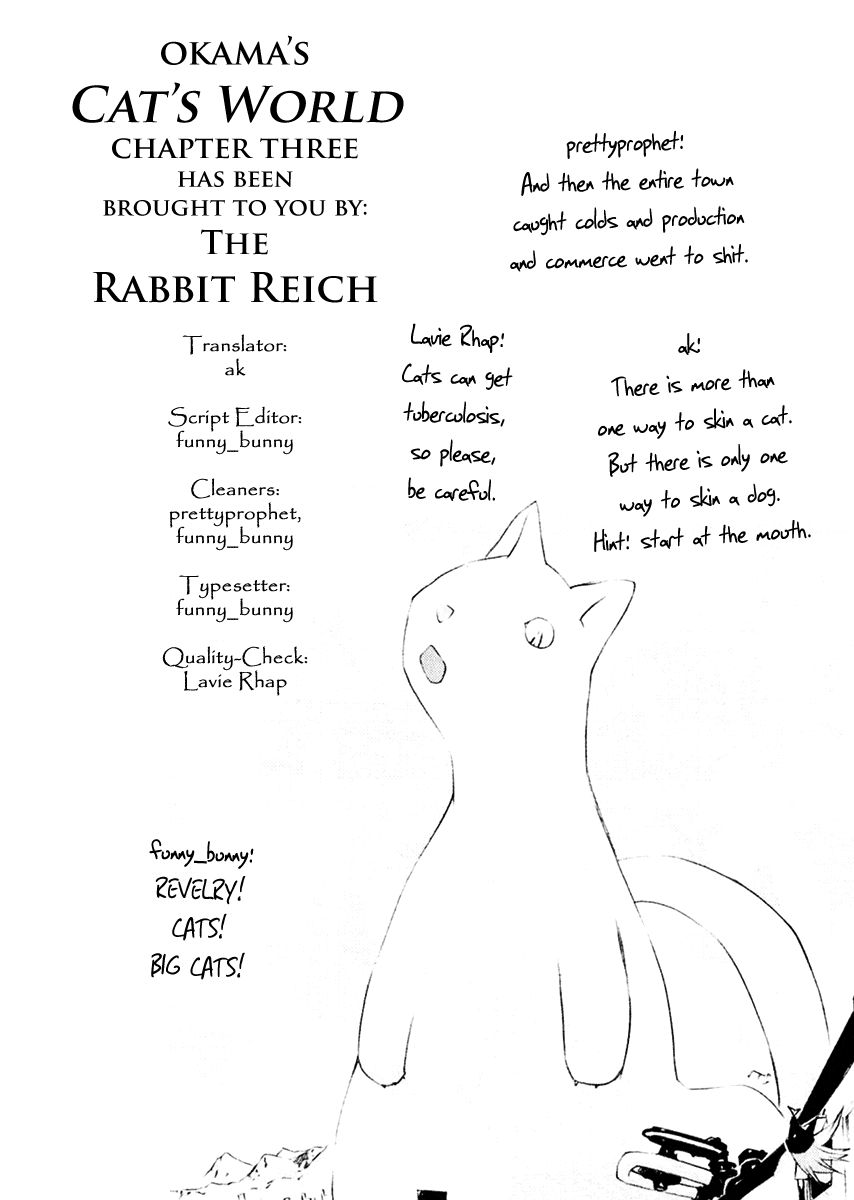 OKAMA'S
CAT'S WORLD
CHAPTER THREE
HAS BEEN
BROUGHT TO YOU BY:
THE
RABBIT REICH
Translator:
ak
Script Editor:
funny_bunny
Cleaners:
prettyprophet,
funny_bunny
Typesetter:
funny_bunny
Quality-Check:
Lavie Rhap
prettyprophet!
And then the entire town
caught colds and production
and commerce went to shit.
Lavie Rhap!
Cats can get
tuberculosis,
so please,
be careful.
ak!
There is more than
one way to skin a cat.
But there is only one
way to skin a dog.
Hint! start at the mouth.
funny_bunny!
REVELRY!
CATS!
BIG CATS!